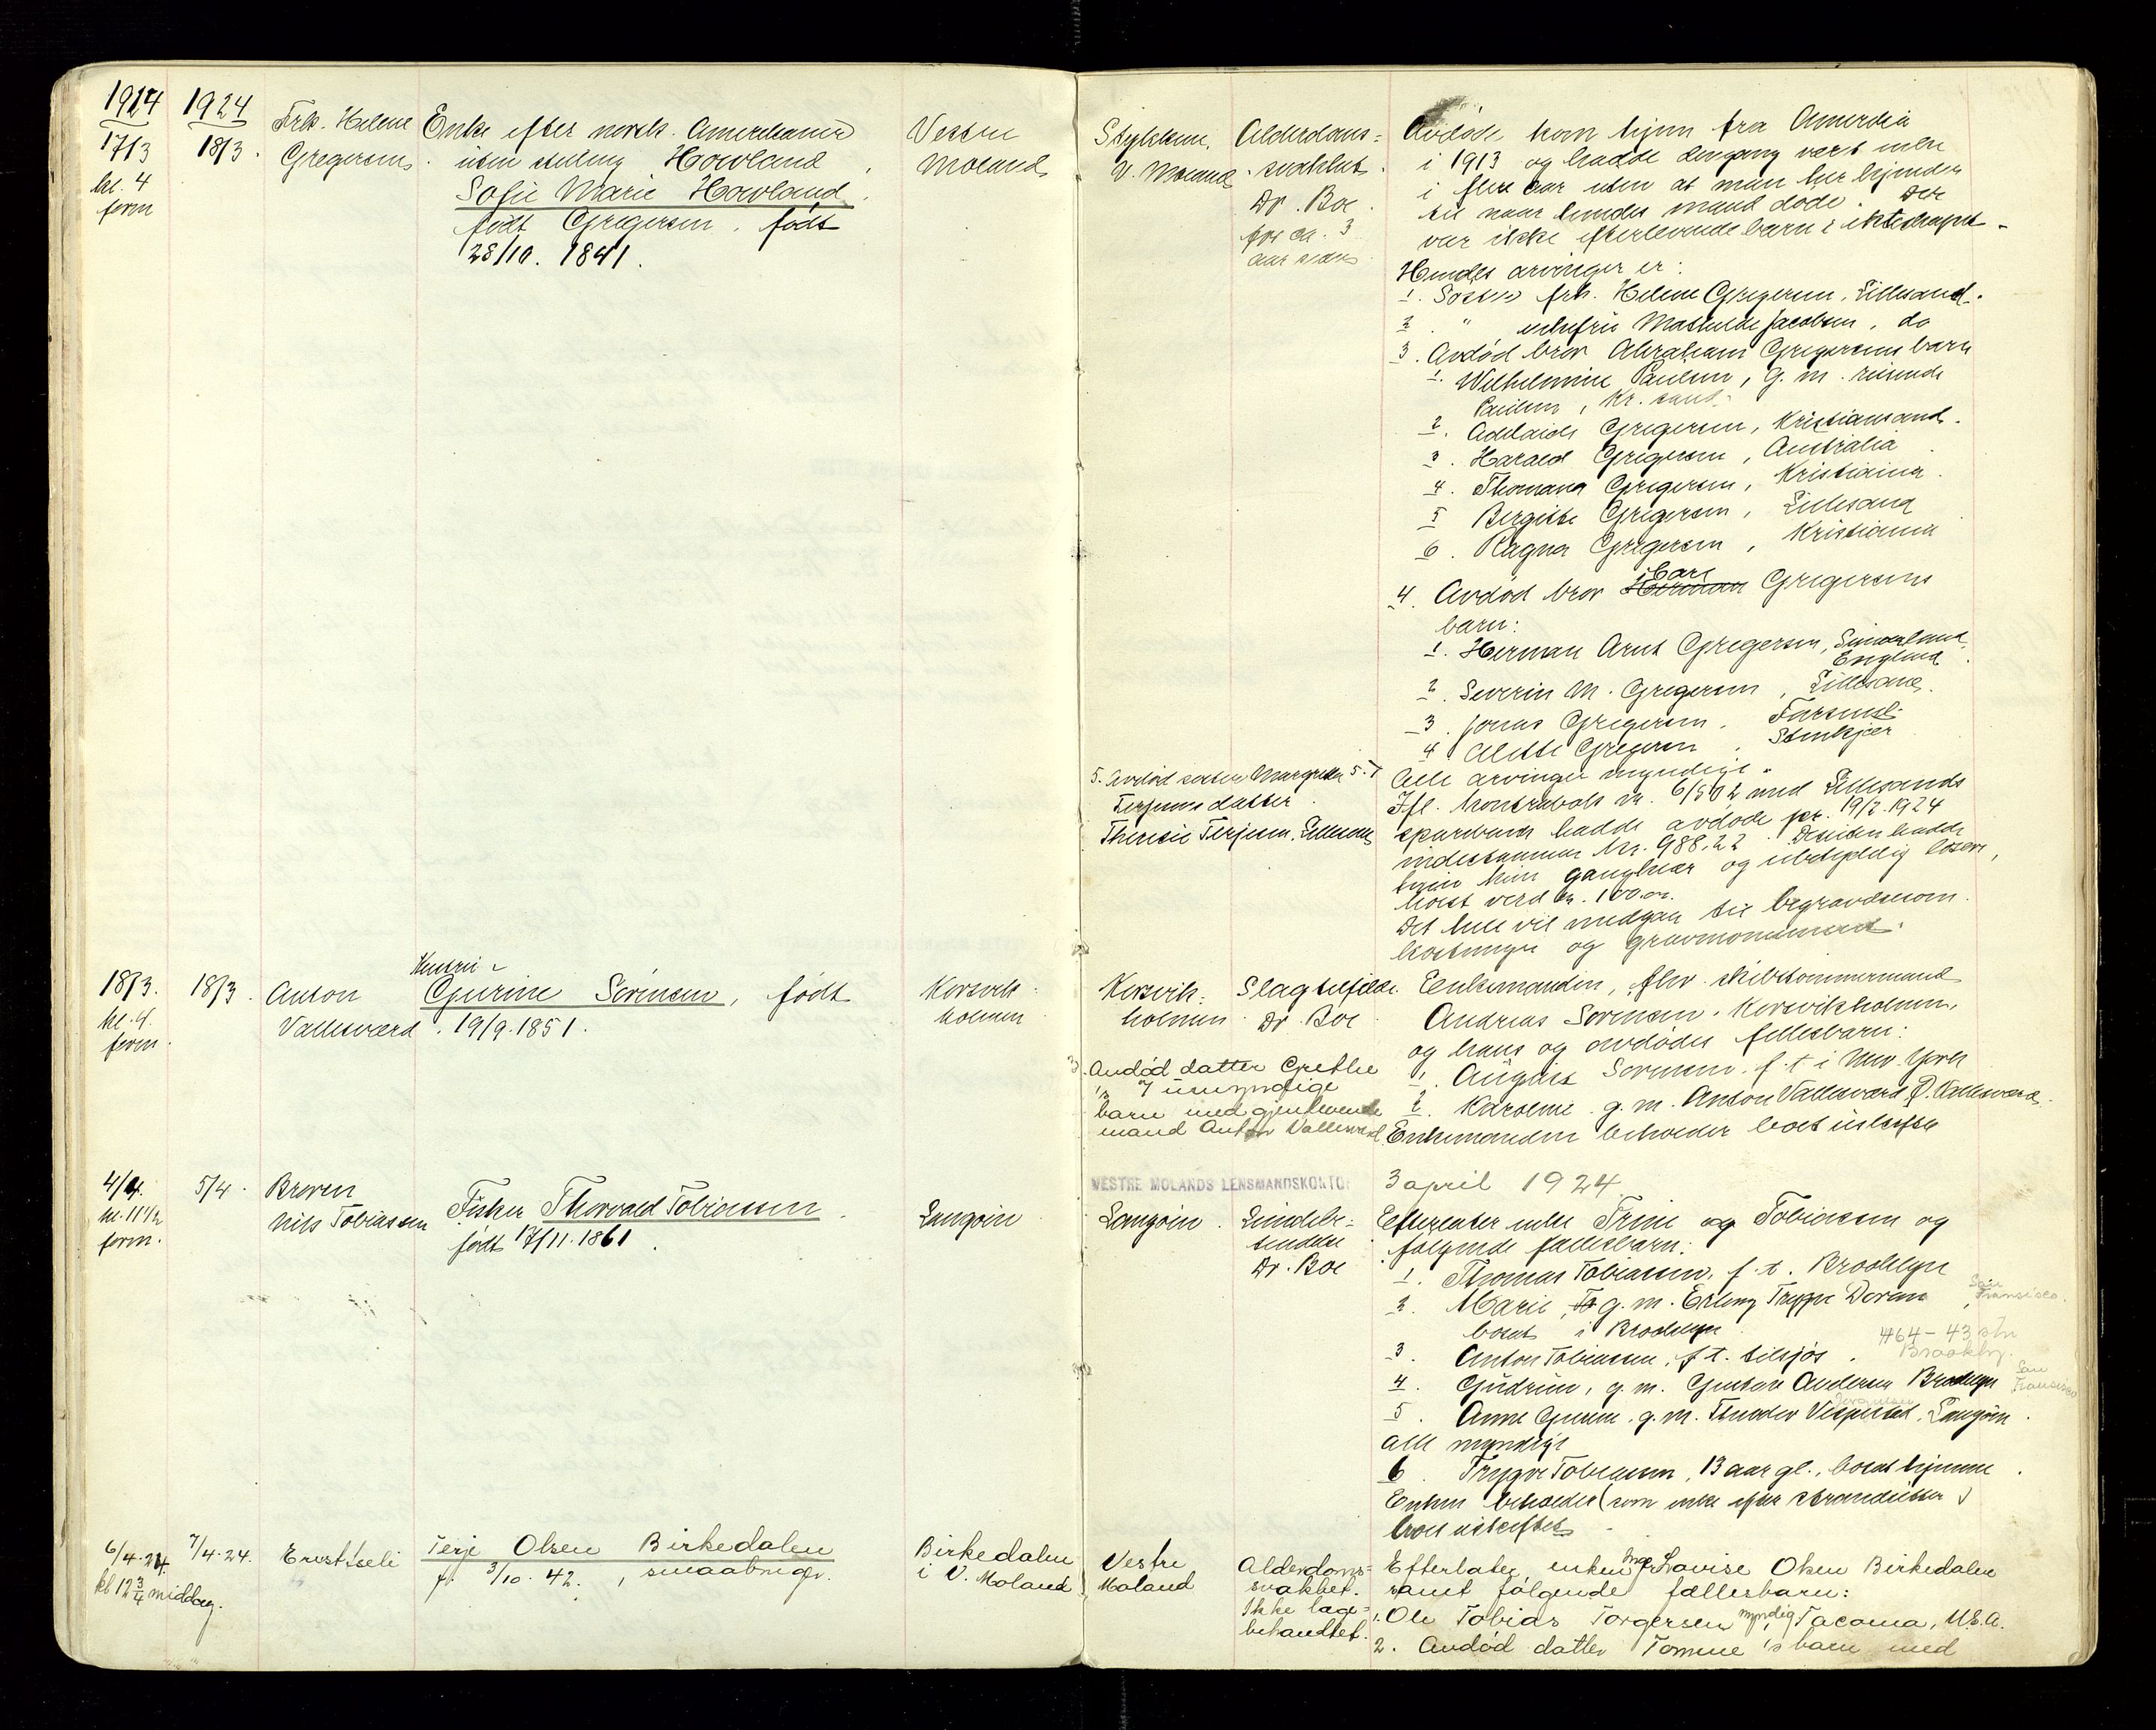 1924 1924
17/3 18/3. Frk. Helene Enke efter norsk. Amerikaner Vestre
kl. 4 Gregersen. uten stilling Howland, Moland
form Sofie Marie Howland.
født Gregersen, født
28/10. 1841.
18/3. 18/3. Anton Hustru Gurine Sørensen, født Korsvik-
kl. 4. Vallesværd. 19/9. 1851. holmen
form.
4/4. 5/4. Broren Fisker Thorvald Tobiassen. Langøen
kl. 11 1/2 Nils Tobiassen født 17/11. 1861.
form.
6/4.24. 7/4.24. Terje Olsen Birkedalen Birkedalen
kl 12 3/4 middag. f. 3/10. 42., smaabrugr. i V. Moland
V. Moland. Alderdoms-
svakhet.
Dr. Boe.
for ca. 3
aar siden
Avdøde kom hjem fra Amerika
i 1913 og hadde dengang vært enke
i flere aar uten at man her kjender
til naar hendes mand døde. Der
var ikke efterlevende barn i ekteskapet.
Hendes arvinger er:
1. Søster frk. Helene Gregersen, Lillesand.
2. " enkefru Mathilde Jacobsen, do
3. Avdød bror Abraham Gregersens barn
1. Wilhelmine Paulsen, g. m. reisende
Paulsen, Kr.sand.
2. Adelaide Gregersen, Kristiansand.
3. Harald Gregersen, Australia
4. Thomana Gregersen, Kristiania.
5 Bergitte Gregersen, Lillesand
6. Ragna Gregersen, Kristiania
4. Avdød bror Herman Gregersens
barn:
1. Herman Arnt Gregersen, Sunderland,
England.
2. Severin M. Gregersen, Lillesand.
3. Jonas Gregersen, Farsund.
4 Alette Gregersen, Stenkjær
5. Avdød søster Margrethe
Terjesens datter.
Theresie Terjesen. Lillesand
Alle arvinger myndige.
Ifl. kontrabok nr. 6/502 med Lillesands
sparebank hadde avdøde pr. 19/2.1924
indestaaende kr. 988.22. Desuten hadde
hun kun gangklær og ubetydelig løsøre,
høist verd kr. 100.00.
Det hele vil medgaa til begravelsesom-
kostninger og gravmonument.
Korsvik- Slagtilfælde. Enkemanden, fhv. skibstømmermand
holmen Dr. Boe Andreas Sørensen, Korsvikholmen,
og hans og avdødes fellesbarn:
1. August Sørensen. f.t i New York
2. Karoline. g. m. Anton Vallesværd, Vallesværd.
3. Avdød datter Grethe
's 7 umyndige
barn med gjenlevende
mand Anton Vallesværd.
Enkemanden beholder boet uskiftet
VESTRE MOLANDS LENSMANDSKONTOR 3 april 1924
Langøen.
Dr. Boe
Efterlater enke Trine Tobiassen og
følgende fællesbarn:
1. Thomas Tobiassen, f. t. Brooklyn
2. Marie, g. m. Erling Trygve San Fransisco.
bosat i Brooklyn
3. Anton Tobiassen, f. t. tilsjøs. 464-43 str Brooklyn.
4. Gudrun, g. m. Gustav Andersen Brooklyn San Fransisco
5. Anne Gurine. g. m. Theodor Langøen.
alle myndige
6. Trygve Tobiassen, 13 aar gl., bosat hjemme.
Enken beholder (som enke efter
boet uskiftet.
Vestre Alderdoms- Efterlater enken Inger Lovise Olsen Birkedalen
Moland svakhet. samt følgende fællesbarn:
Ikke læge- 1. Ole Tobias Torgersen myndig, Tacoma, U.S.A.
behandlet. 2. Avdød datter Tomine 's barn med